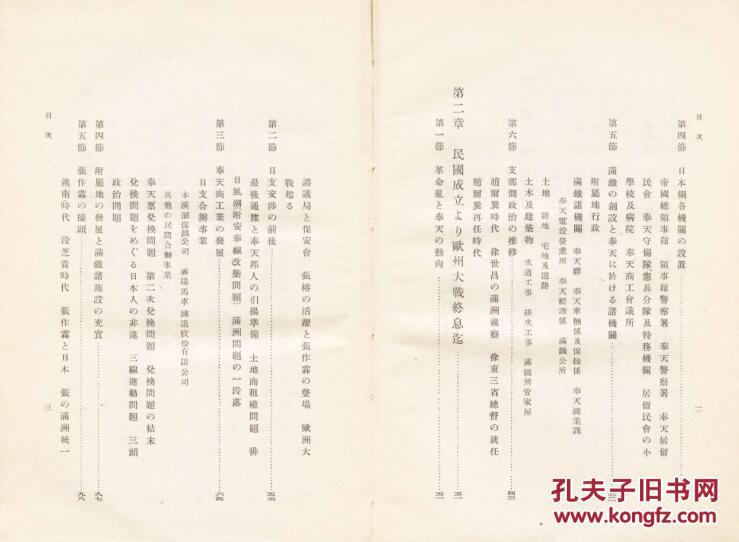 目次
第四節 日本側各機關の設置
帝國總領事館 領事館警察署 奉天警察署 奉天居留
民會 奉天守備隊憲兵分隊及特務機關 居留民會の小
學校及病院 奉天商工會議所
第五節 滿鐵の創設と奉天に於ける諸機關
附屬地行政
滿鐵諸機關 奉天驛 奉天車輛係及保線係
奉天電燈營業所 奉天經理係 滿鐵公所
土地 耕地 宅地及道路
土木及建築物 水道工事 排水工事 滿鐵所管家屋
第六節 支那側政治の推移 四三
趙爾巽時代 徐世昌の滿洲視察 徐東三省總督の就任
趙爾巽再任時代
第二章 民國成立より歐洲大戰終息迄 五一
第一節 革命亂と奉天の動向 五一
二
目次
諮議局と保安會 張榕の活躍と張作霖の登場 歐洲大
戰起る
第二節 日支交涉の前後 五五
最後通牒と奉天邦人の引揚準備 土地商租權問題 排
日風潮附安奉線改築問題) 滿洲問題の一段落
第三節 奉天商工業の發展 六四
日支合辦事業
本溪湖煤鐵公司 瀋陽馬車鐵道股份有限公司
其他の民間合辦事業
奉天票兌換問題 第二次兌換問題 兌換問題の結末
兌換問題をめぐる日本人の非違 三線連絡問題 三頭
政治問題
第四節 附屬地の發展と滿鐵諸施設の充實 九七
第五節 張作霖の擡頭 九八
洮南時代 段芝貴時代 張作霖と日本 張の滿洲統一
三
孔夫子旧书网
www.kongfz.com